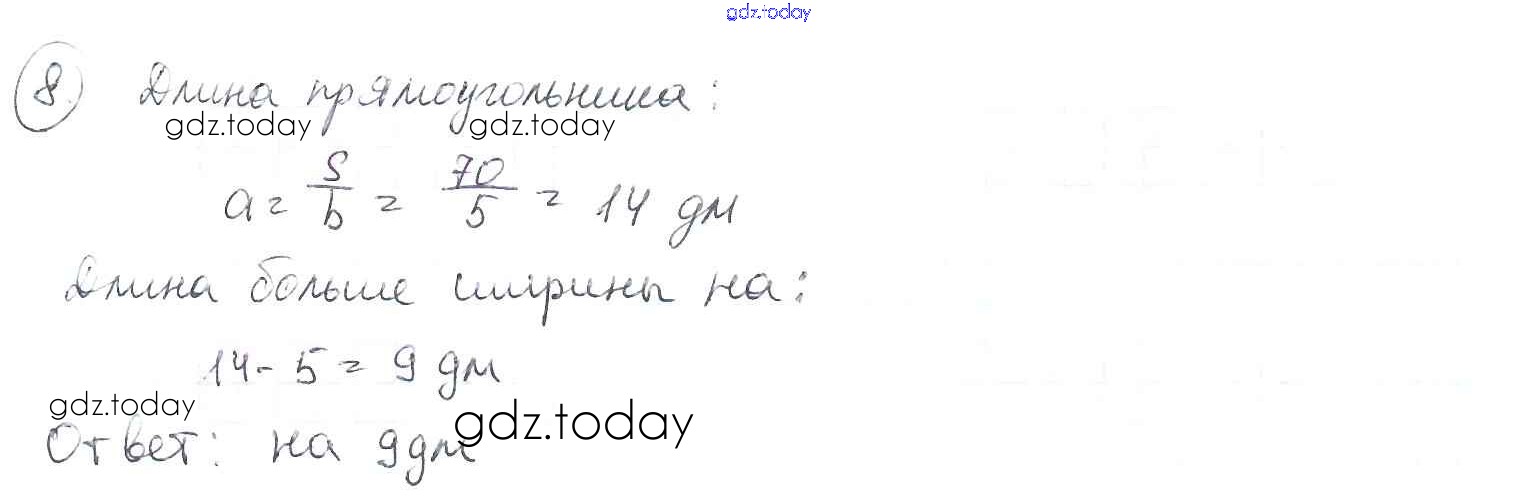 gdz.today
8) Длина прямоугольника:
gdz.today gdz.today
a = S/b = 70/5 = 14 дм
Длина больше ширины на:
14 - 5 = 9 дм
gdz.today
gdz.today
Ответ: на 9дм